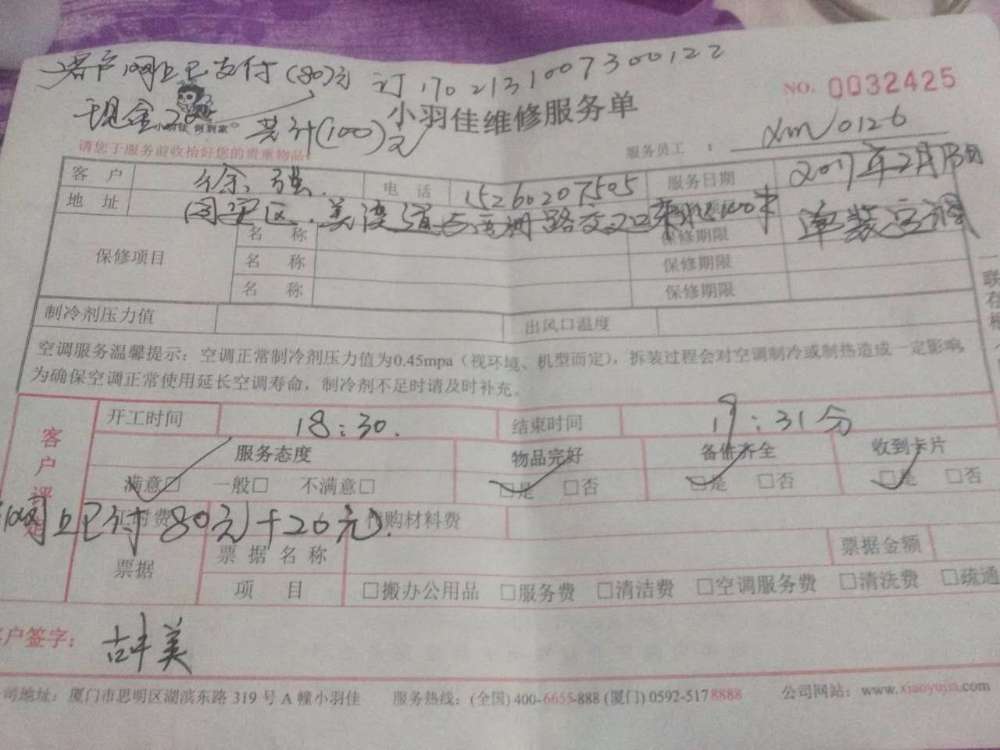 客户网上已支付(80)元 订1702131007300122
现金20 共计(100)元
NO. 0032425
小羽佳维修服务单
请您于服务前收拾好您的贵重物品
服务员工 : xm0126
客户 徐强 电话 15260207505 服务日期 2017年2月13日
地址
单装空调
保修项目 名称 保修期限
名称 保修期限
名称 保修期限
制冷剂压力值 出风口温度
空调服务温馨提示：空调正常制冷剂压力值为0.45mpa（视环境、机型而定），拆装过程会对空调制冷或制热造成一定影响，
为确保空调正常使用延长空调寿命，制冷剂不足时请及时补充。
客户评 开工时间 18:30. 结束时间 19:31分
服务态度 物品完好 备件齐全 收到卡片
满意□ 一般□ 不满意□ □是 □否 □是 □否 □是 □否
网上已付80元+20元 购材料费
票据 票据名称 票据金额
项目 □搬办公用品 □服务费 □清洁费 □空调服务费 □清洗费 □疏通
客户签字：
公司地址：厦门市思明区湖滨东路 319 号 A 幢小羽佳 服务热线：(全国) 400-6655-888 (厦门) 0592-5178888 公司网站：www.xiaoyujia.com
一联存根